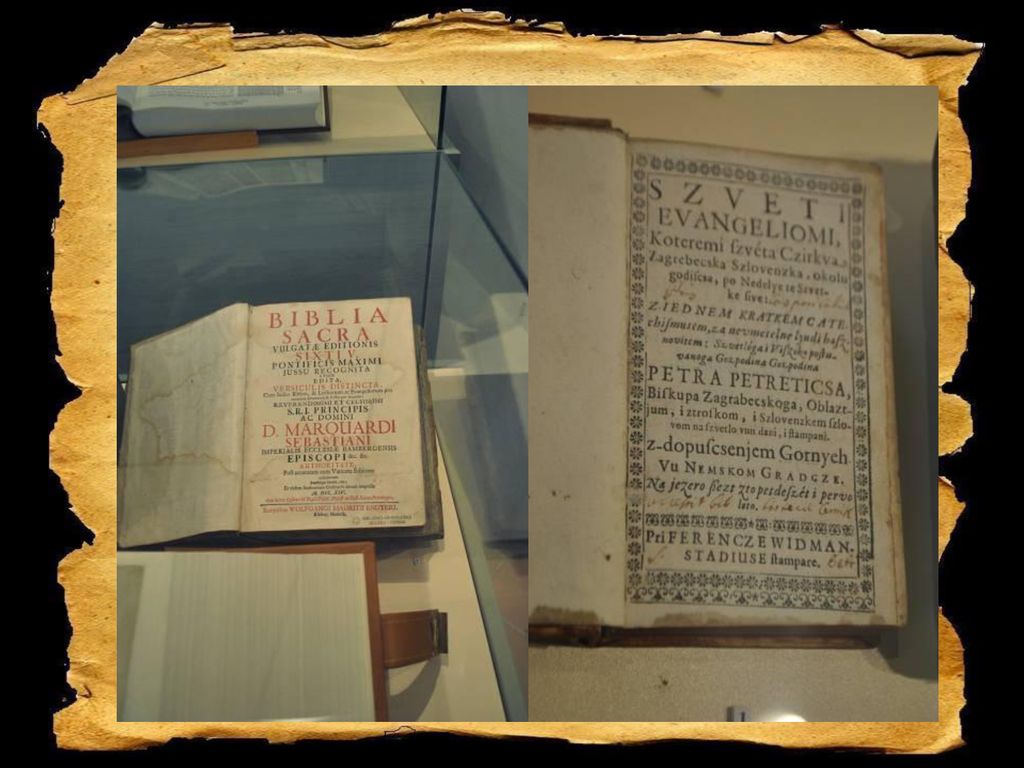 BIBLIA
SACRA
VULGATÆ EDITIONIS
SIXTI V.
PONTIFICIS MAXIMI
JUSSU RECOGNITA
EDITA,
VERSICULIS DISTINCTA,
REVERENDISSIMI ET CELSISSIMI
S.R.I. PRINCIPIS
AC DOMINI
D. MARQUARDI
SEBASTIANI
IMPERIALIS ECCLESIÆ BAMBERGENSIS
EPISCOPI &c. &c.
AUTHORITATE,
WOLFGANGI MAURITII ENDTERI,
SZVETI
EVANGELIOMI,
Koteremi ſzvéta Czirkva
Zagrebecska Szlovenzka, okolu
godiſcsa, po Nedelye te Szvet-
ke
Z IEDNEM KRATKEM CATE-
chiſmuſem, za nevmetelne lyudi haſz-
novitem:
vanoga Goſzpodina Goſzpodina
PETRA PETRETICSA,
Biſkupa Zagrabecskoga, Oblazt-
jum, i ztroſkom, i Szlovenzkem ſzlo-
vom na ſzvetlo vun dani, i ſtampani.
z-dopuſcsenjem Gornyeh.
Vu NEMSKOM GRADCZE,
Na jezero ſſezt ztopetdeſzét i pervo
leto.
Pri FERENCZE WIDMAN-
STADIUSE ſtampare.